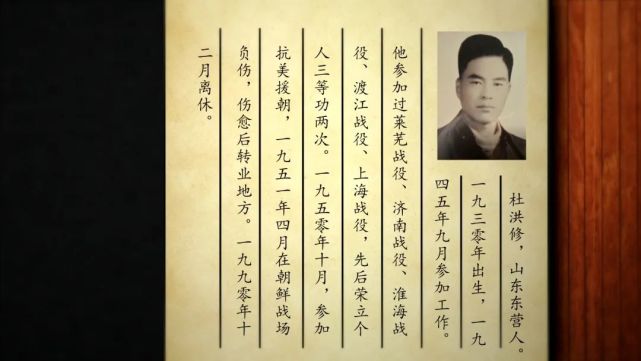 杜洪修，山东东营人。
一九三零年出生，一九
四五年九月参加工作。
他参加过莱芜战役、济南战役、淮海战
役、渡江战役、上海战役，先后荣立个
人三等功两次。一九五零年十月，参加
抗美援朝，一九五一年四月在朝鲜战场
负伤，伤愈后转业地方。一九九零年十
二月离休。